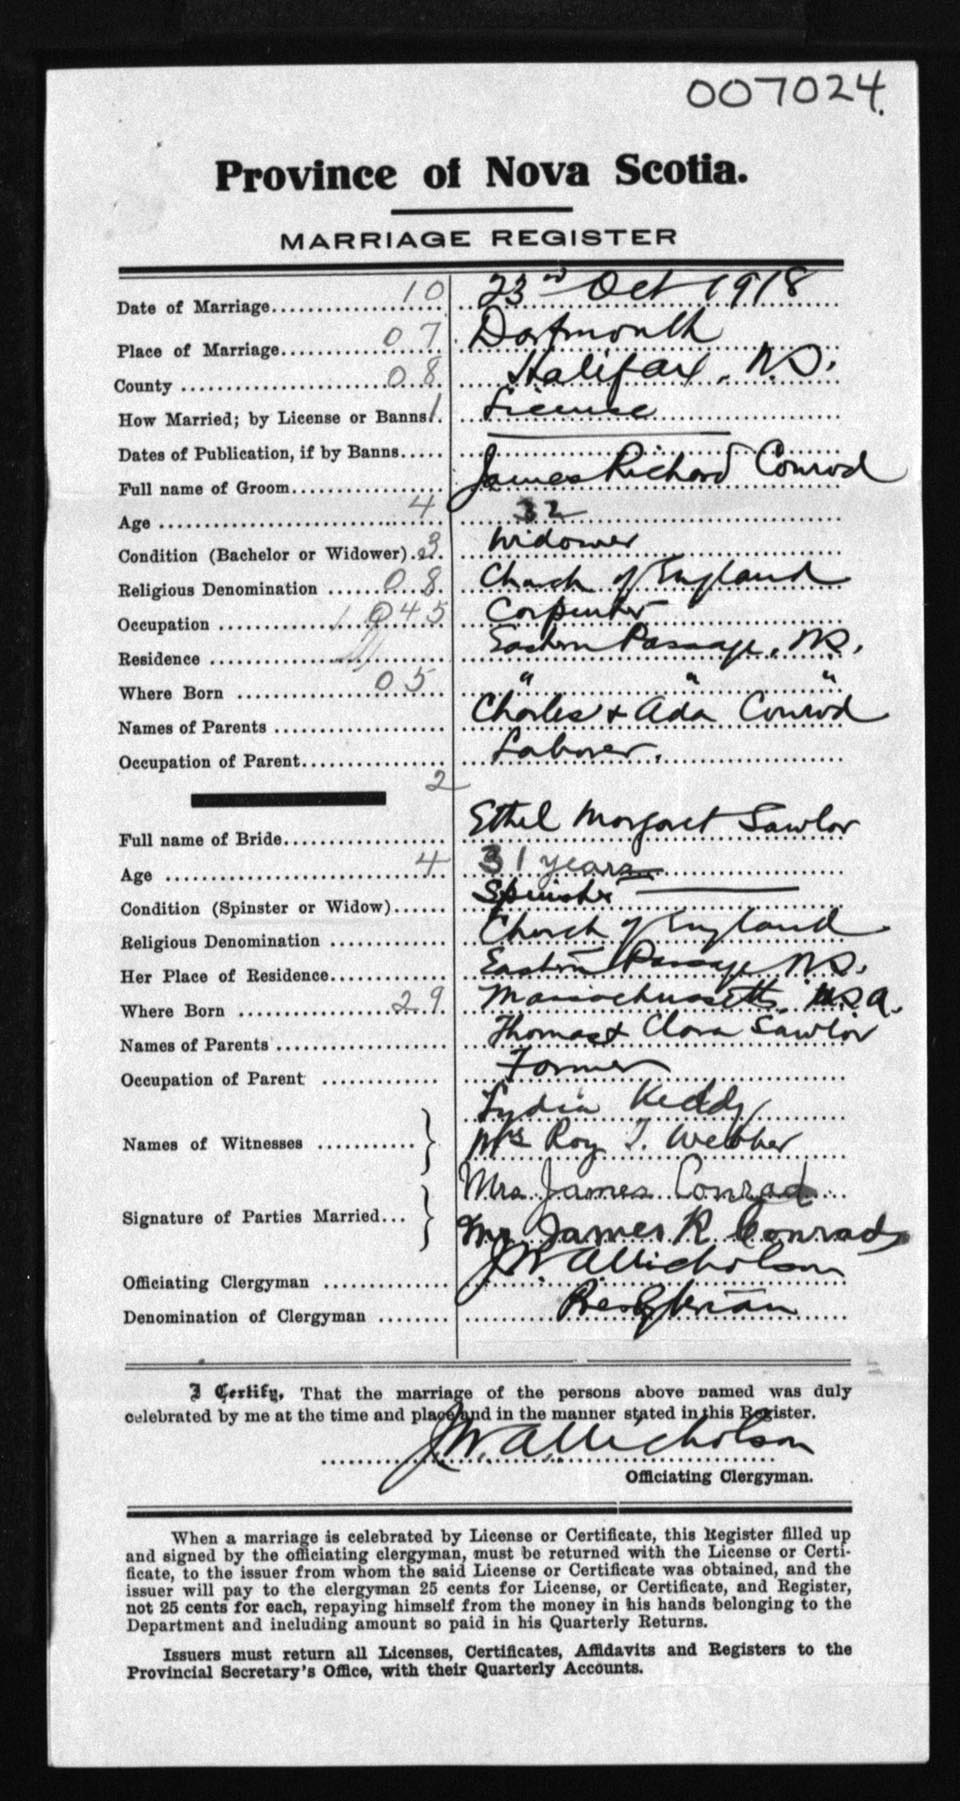 007024.
Province of Nova Scotia.
MARRIAGE REGISTER
Date of Marriage 10 23rd Oct 1918
Place of Marriage 07 Dartmouth
County 08 Halifax, N.S.
How Married; by License or Banns 1 License
Dates of Publication, if by Banns
Full name of Groom James Richard Conrod
Age 4 32
Condition (Bachelor or Widower) 3 Widower
Religious Denomination 08 Church of England
Occupation 045 Carpenter
Residence Eastern Passage, N.S.
Where Born 05 " " "
Names of Parents Charles & Ada Conrod
Occupation of Parent Laborer.
2
Full name of Bride Ethel Margaret Sawlor
Age 4 31 years
Condition (Spinster or Widow) Spinster
Religious Denomination Church of England
Her Place of Residence Eastern Passage N.S.
Where Born 29 Massachusetts, U.S.A.
Names of Parents Thomas & Clara Sawlor
Occupation of Parent Farmer
Lydia Keddy
Names of Witnesses } Mrs Roy T. Webber
Mrs James Conrad
Signature of Parties Married } Mr James R Conrad
Officiating Clergyman J. W. A. Nicholson
Denomination of Clergyman Presbyterian
I Certify, That the marriage of the persons above named was duly
celebrated by me at the time and place and in the manner stated in this Register.
J. W. A. Nicholson
Officiating Clergyman.
When a marriage is celebrated by License or Certificate, this Register filled up
and signed by the officiating clergyman, must be returned with the License or Certi-
ficate, to the issuer from whom the said License or Certificate was obtained, and the
issuer will pay to the clergyman 25 cents for License, or Certificate, and Register,
not 25 cents for each, repaying himself from the money in his hands belonging to the
Department and including amount so paid in his Quarterly Returns.
Issuers must return all Licenses, Certificates, Affidavits and Registers to the
Provincial Secretary's Office, with their Quarterly Accounts.